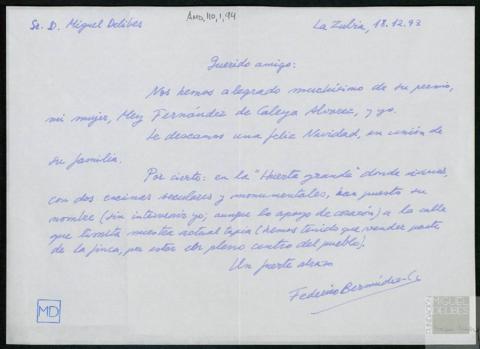 Sr. D. Miguel Delibes
AMD, 110, 1, 94
La Zubia, 18.12.93
Querido amigo:
Nos hemos alegrado muchísimo de su premio,
mi mujer, Mely Fernández de Caleya Alvarez, y yo.
Le deseamos una feliz Navidad, en unión de
su familia.
Por cierto: en la "Huerta grande" donde vivimos,
con dos encinas seculares y monumentales, han puesto su
nombre (sin intervenir yo, aunque lo apoyo de corazón) a la calle
que limita nuestra actual tapia (hemos tenido que vender parte
de la finca, por estar en pleno centro del pueblo).
Un fuerte abrazo
Federico Bermúdez-C.
MD
FUNDACIÓN
MIGUEL
DELIBES